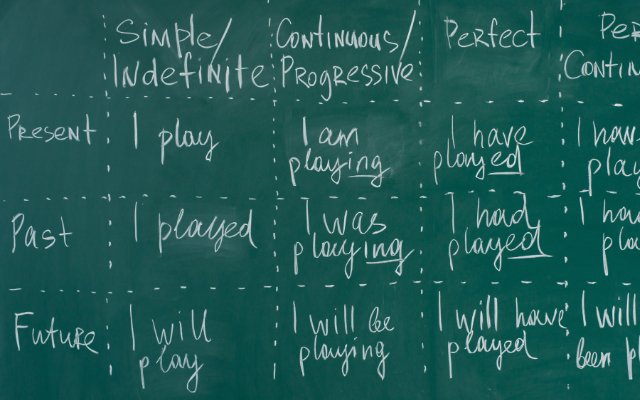 Simple/
Indefinite
Continuous/
Progressive
Perfect
Present
I play
I am
playing
I have
played
Past
I played
I was
playing
I had
played
Future
I will
play
I will be
playing
I will have
played
I will
been